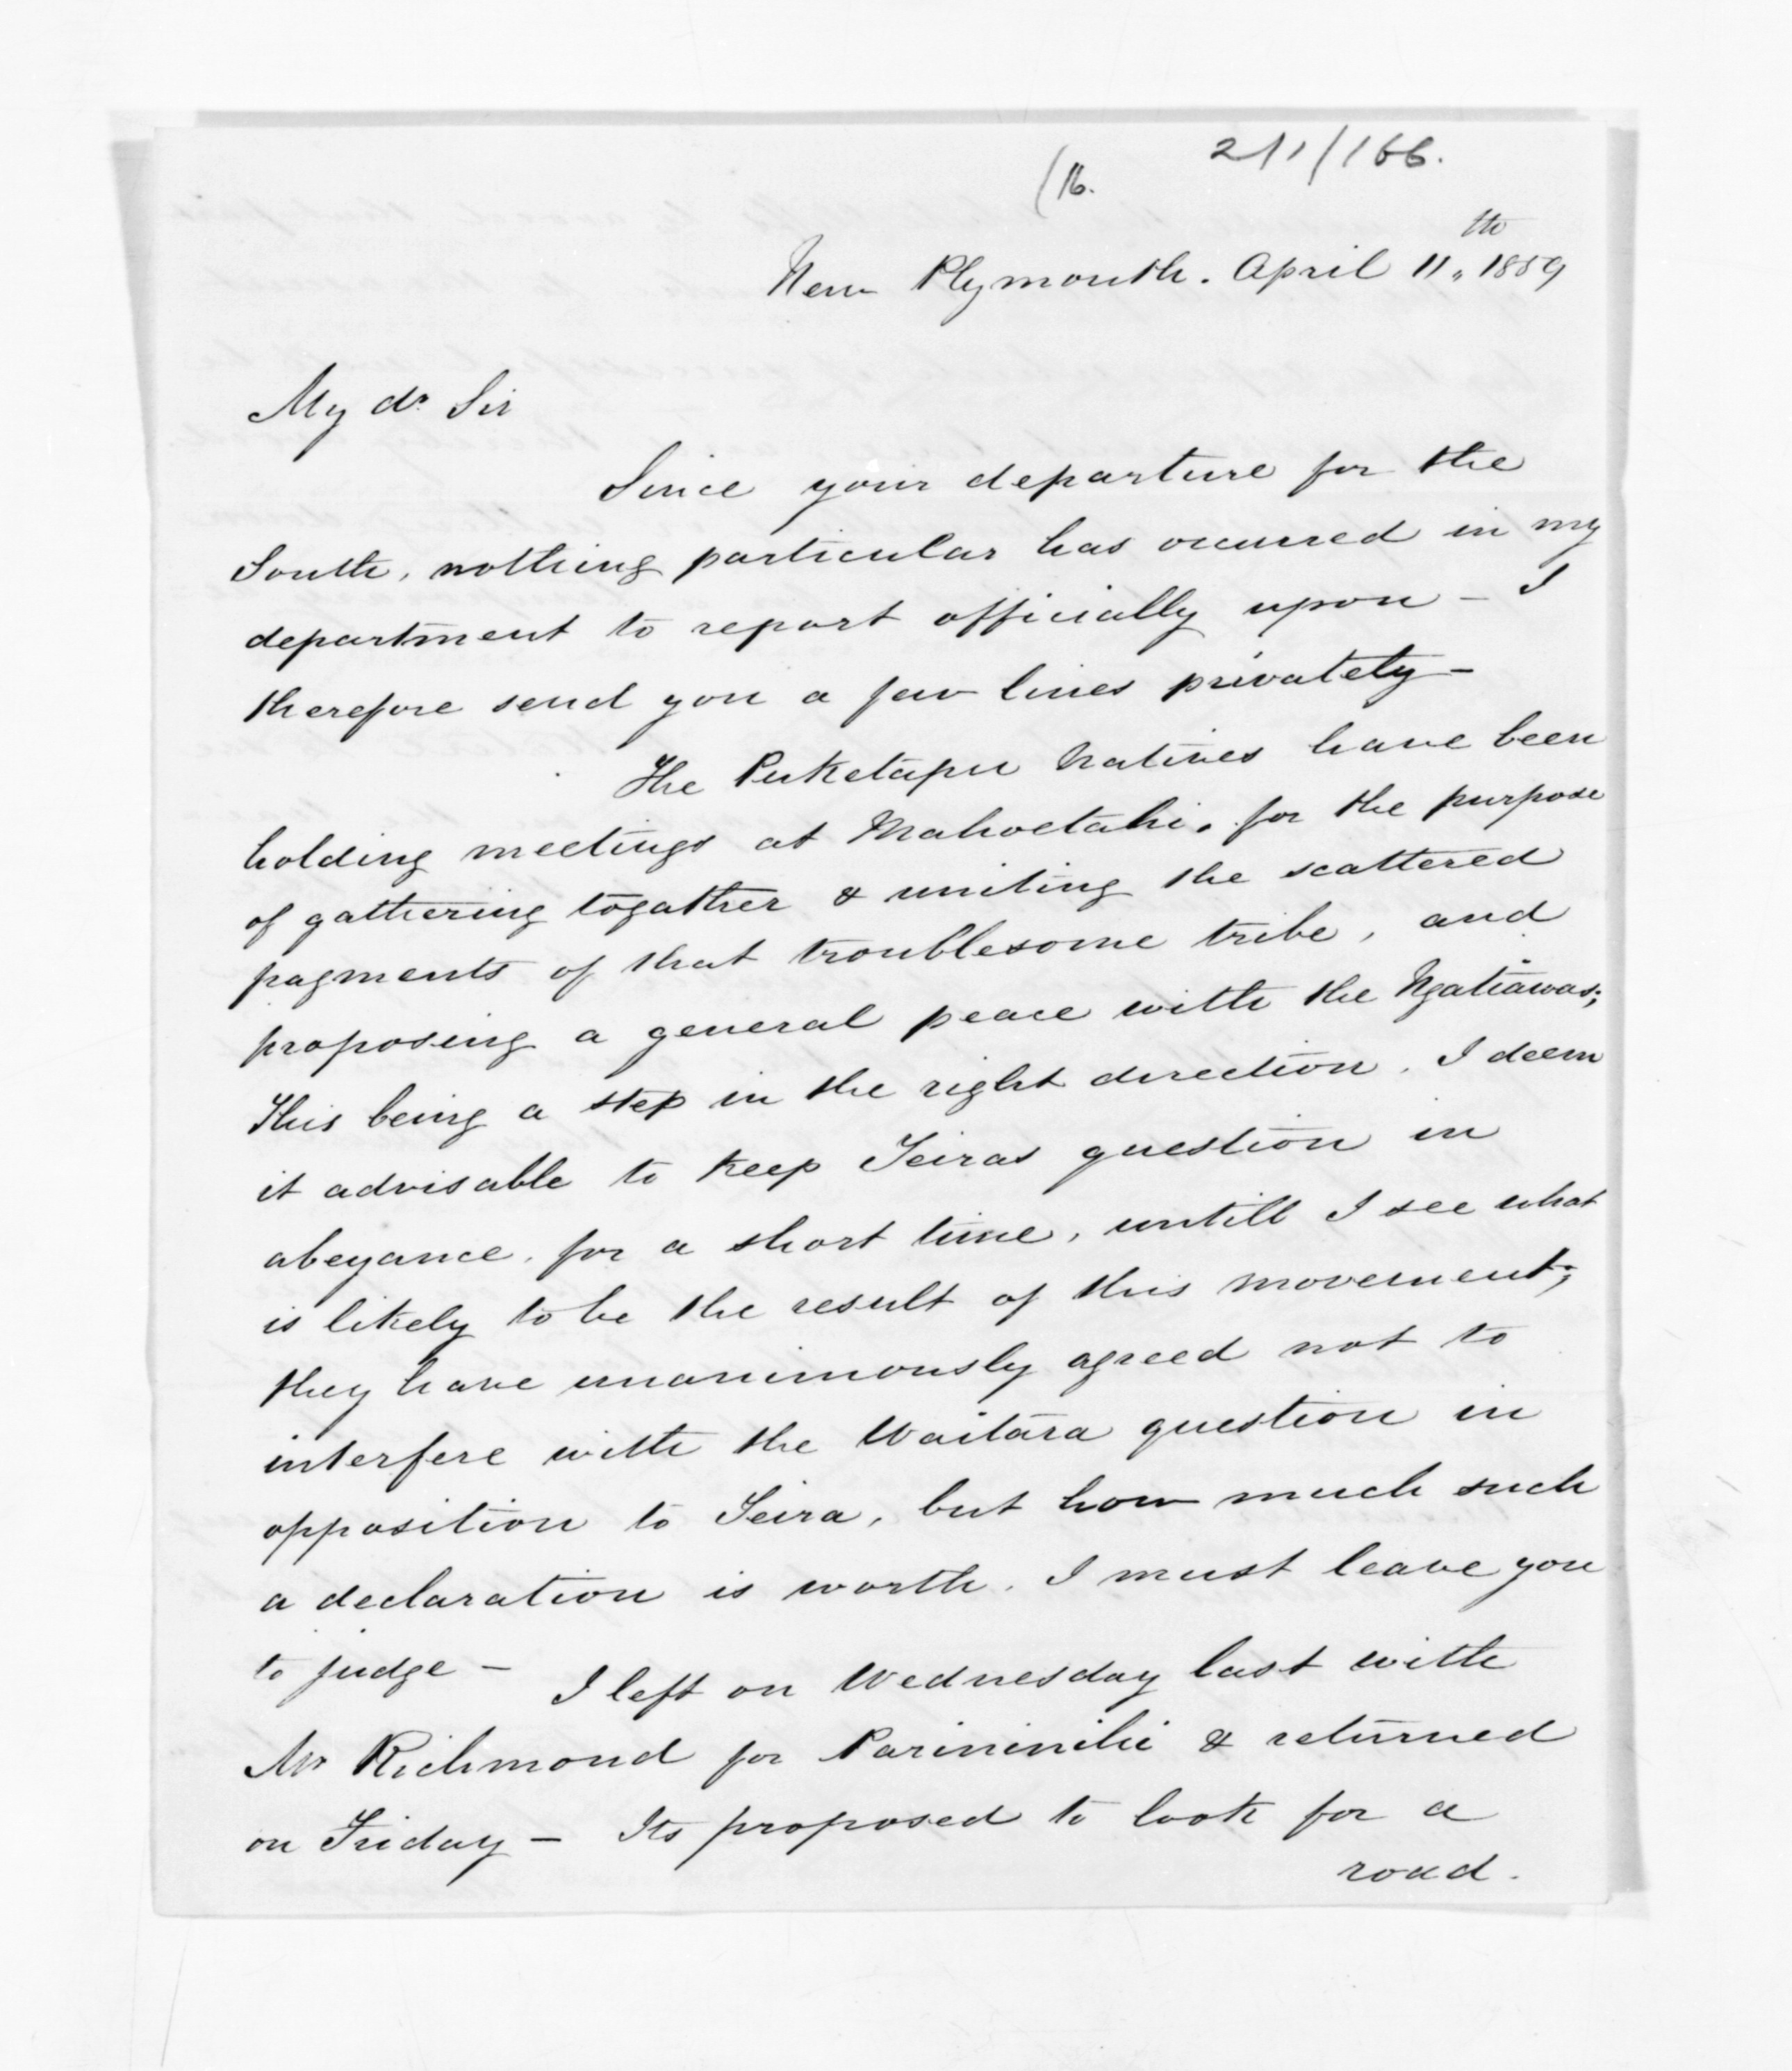 211/166.
(16.
New Plymouth. April 11th 1859
My dr Sir
Since your departure for the
South, nothing particular has occurred in my
department to report officially upon - I
therefore send you a few lines privately -
The Puketapu Natives have been
holding meetings at Mahoetahi, for the purpose
of gathering togather & uniting the scattered
fragments of that troublesome tribe, and
proposing a general peace with the Ngatiawas;
This being a step in the right direction, I deem
it advisable to keep Teiras question in
abeyance, for a short time, untill I see what
is likely to be the result of this movement;
they have unanimously agreed not to
interfere with the Waitara question in
opposition to Teira, but how much such
a declaration is worth, I must leave you
to judge -
I left on Wednesday last with
Mr Richmond for Parininihi & returned
on Friday - Its proposed to look for a
road.